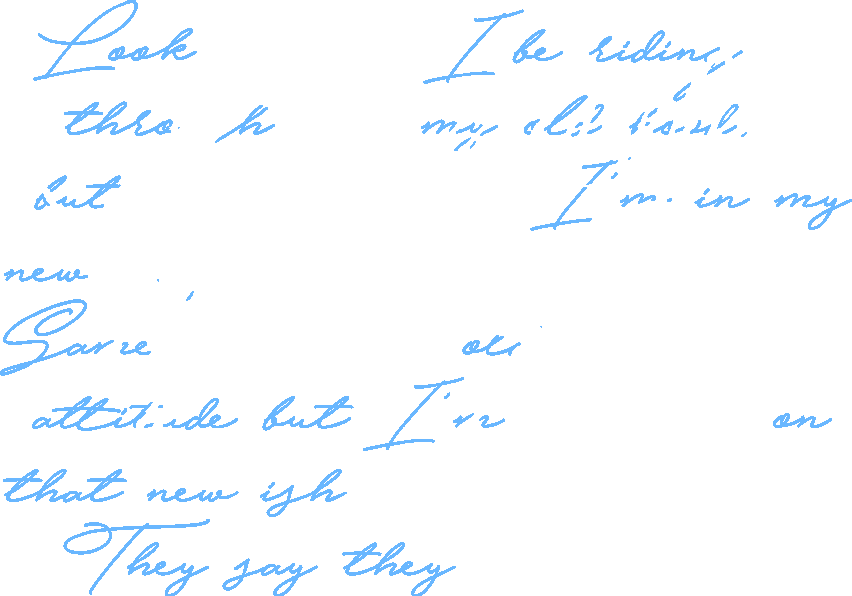 Look I be riding
thro h my old
but I'm in my
new
Same
attitude but I'm on
that new ish
They say they